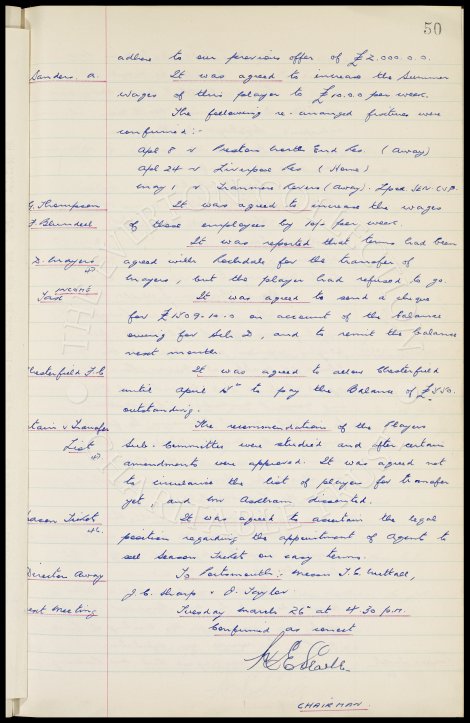 50
adhere to our previous offer of £2.000.0.0.
Sanders. A. It was agreed to increase the Summer
wages of this player to £10.0.0 per week.
The following re-arranged fixtures were
confirmed:-
Apl 8 v Preston North End Res. (Away)
Apl 24 v Liverpool Res (Home)
May 1 v Tranmere Rovers (Away). Lpool SEN CUP.
G. Thompson It was agreed to increase the wages
F. Blundell of these employees by 10/- per week.
It was reported that terms had been
D. Mayers agreed with Rochdale for the transfer of
Mayers, but the player had refused to go.
INCOME Tax It was agreed to send a cheque
for £1509.10.0 on account of the balance
owing for Sch D, and to remit the balance
next month.
Chesterfield F.C It was agreed to allow Chesterfield
until April to pay the Balance of
outstanding.
Retain & Transfer The recommendation of the Players
List Sub. Committee were studied and after certain
amendments were approved. It was agreed not
to circularise the list of players for transfer
yet, and Mr Askham dissented.
Season Tickets It was agreed to ascertain the legal
position regarding the appointment of Agent to
sell Season Tickets on easy terms.
Director Away To Portsmouth:- Messrs T. C. Nuttall,
J. C. Sharp & J. Taylor.
Next Meeting Tuesday March 26th at 4.30 p.m.
Confirmed as correct
CHAIRMAN.